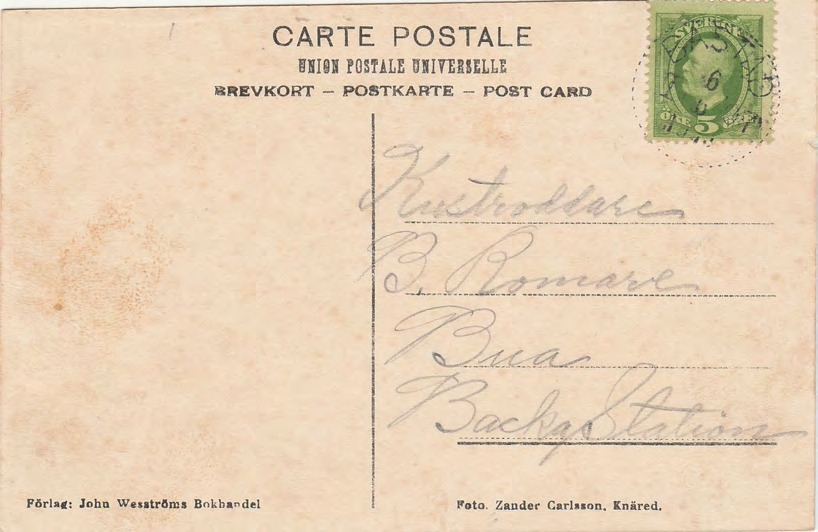 CARTE POSTALE
UNION POSTALE UNIVERSELLE
BREVKORT – POSTKARTE – POST CARD
SVERIGE
6
ÖRE 5
Kustroddare
B. Romare
Bua
Backa Station
Förlag: John Wesströms Bokhandel
Foto. Zander Carlsson, Knäred.